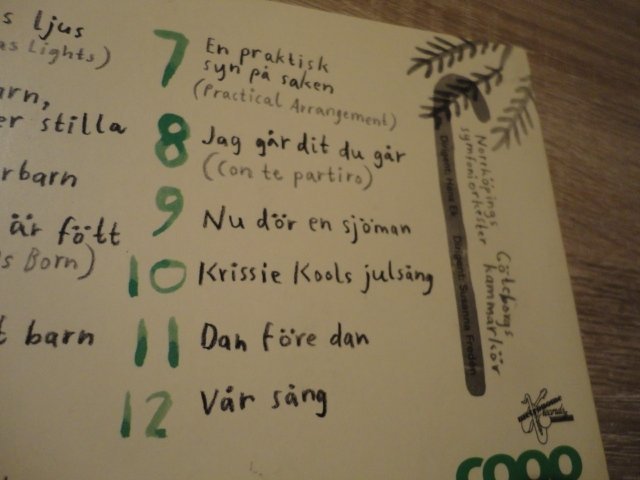 s ljus
as Lights)
arn,
er stilla
rbarn
är fött
s Born)
t barn
7 En praktisk
syn på saken
(Practical Arrangement)
8 Jag går dit du går
(Con te partiro)
9 Nu dör en sjöman
10 Krissie Kools julsång
11 Dan före dan
12 Vår sång
Norrköpings
symfoniorkester
Dirigent: Hans Ek
Göteborgs
kammarkör
Dirigent: Susanna Fredén
coop